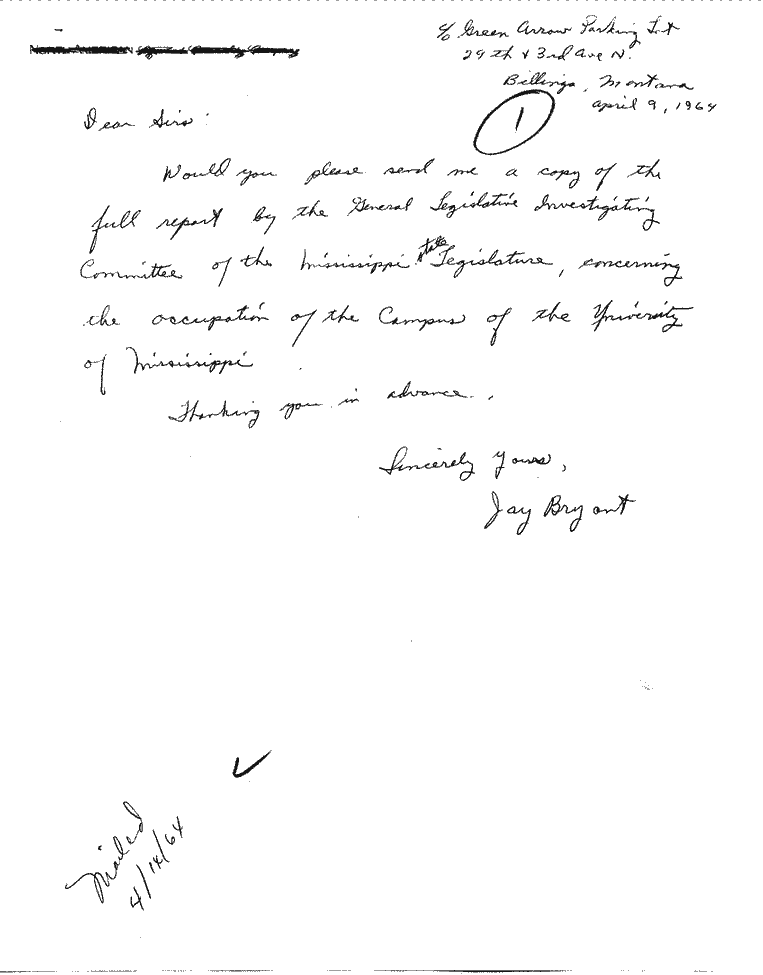 c/o Green Arrow Parking Lot
29th & 3rd Ave N.
Billings, Montana
April 9, 1964
1
Dear Sirs:
Would you please send me a copy of the
full report by the General Legislative Investigating
Committee of the Mississippi State Legislature, concerning
the occupation of the Campus of the University
of Mississippi
Thanking you in advance.
Sincerely Yours,
Jay Bryant
Mailed
4/14/64